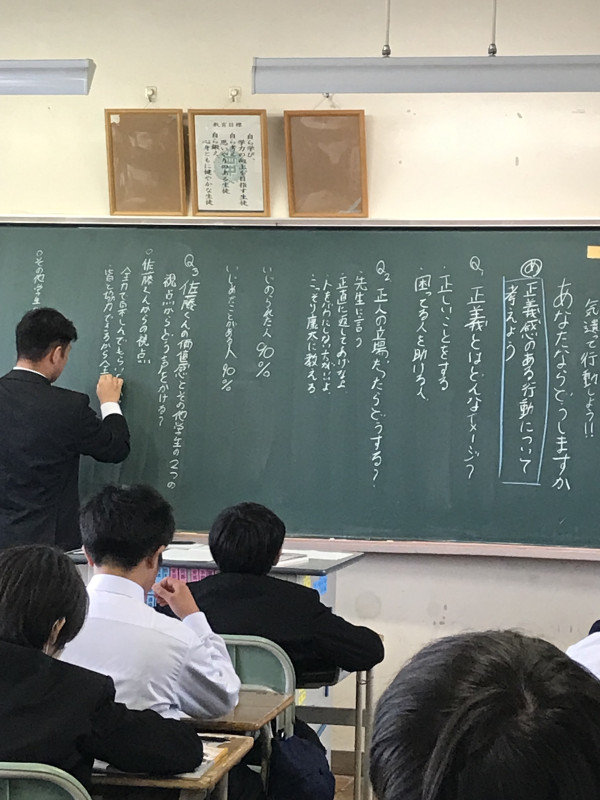 教育目標
自ら学び、
学力の向上を目指す生徒
自ら考え
思いやりのある生徒
自ら鍛え、
心身ともに健やかな生徒
気遣って行動しよう!!
あなたならどうしますか
め 正義感のある行動について
考えよう
Q1 正義とはどんなイメージ?
・正しいことをする
困ってる人を助ける人
Q2 正人の立場だったらどうする?
・先生に言う
・正直に返してあげなよ
・人をバカにしない方がいいよ
こっそり康太に教える
いじめられた人 90%
いじめたことがある人 90%
Q3 佐藤くんの価値感とその他学生の2つの
視点からどう声をかける?
○佐藤くんからの視点
全力で楽しんでもらい
・皆と協力できるから
○その他学生